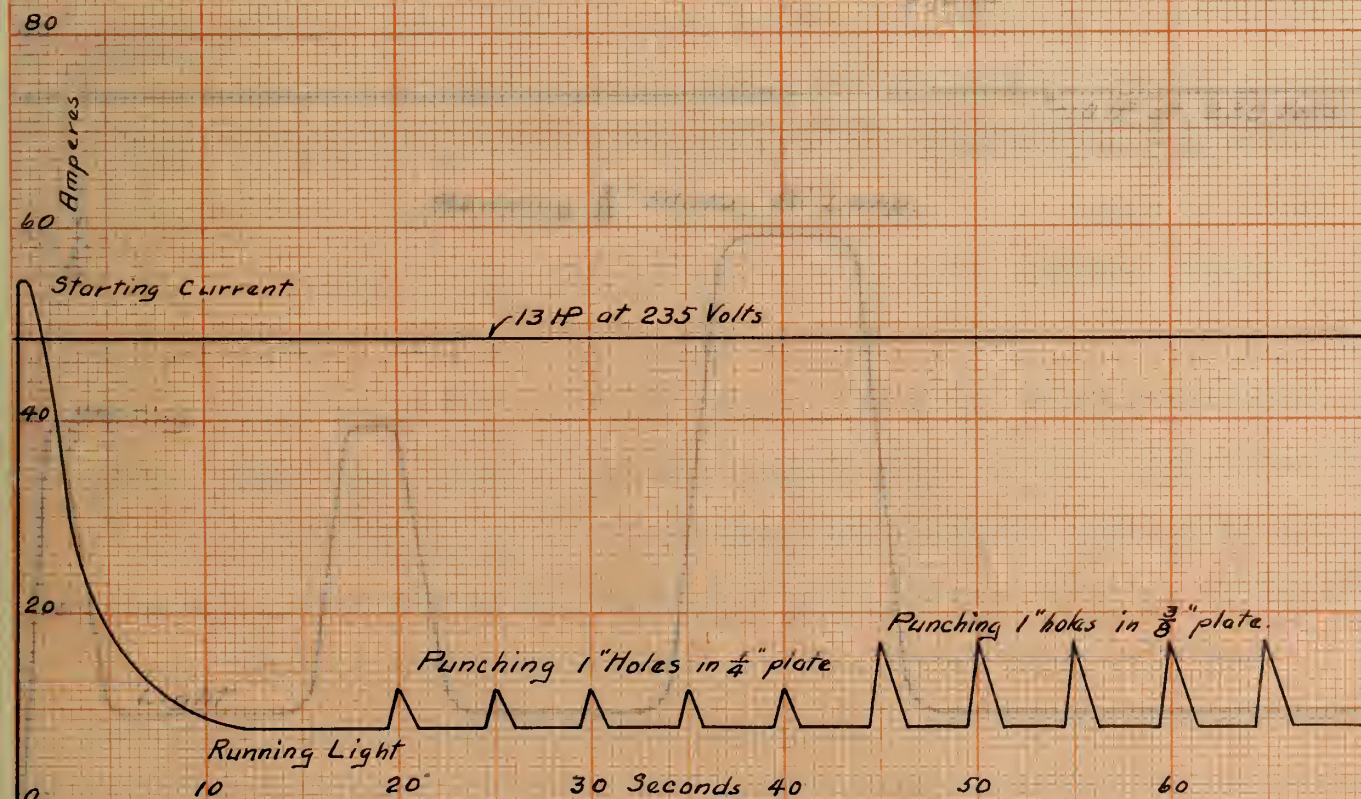 80
Amperes
60
Starting Current
13 HP at 235 Volts
40
20
Punching 1" holes in 3/8" plate.
Punching 1" Holes in 1/4" plate
Running Light
0 10 20 30 Seconds 40 50 60